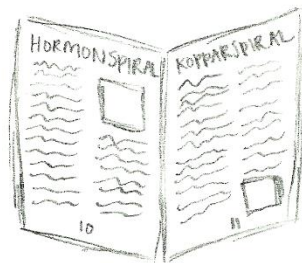 HORMONSPIRAL
KOPPARSPIRAL
10
11